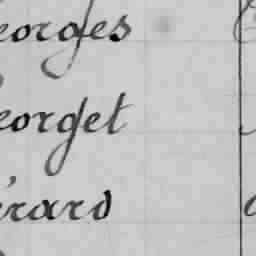 eorges
eorget
érard